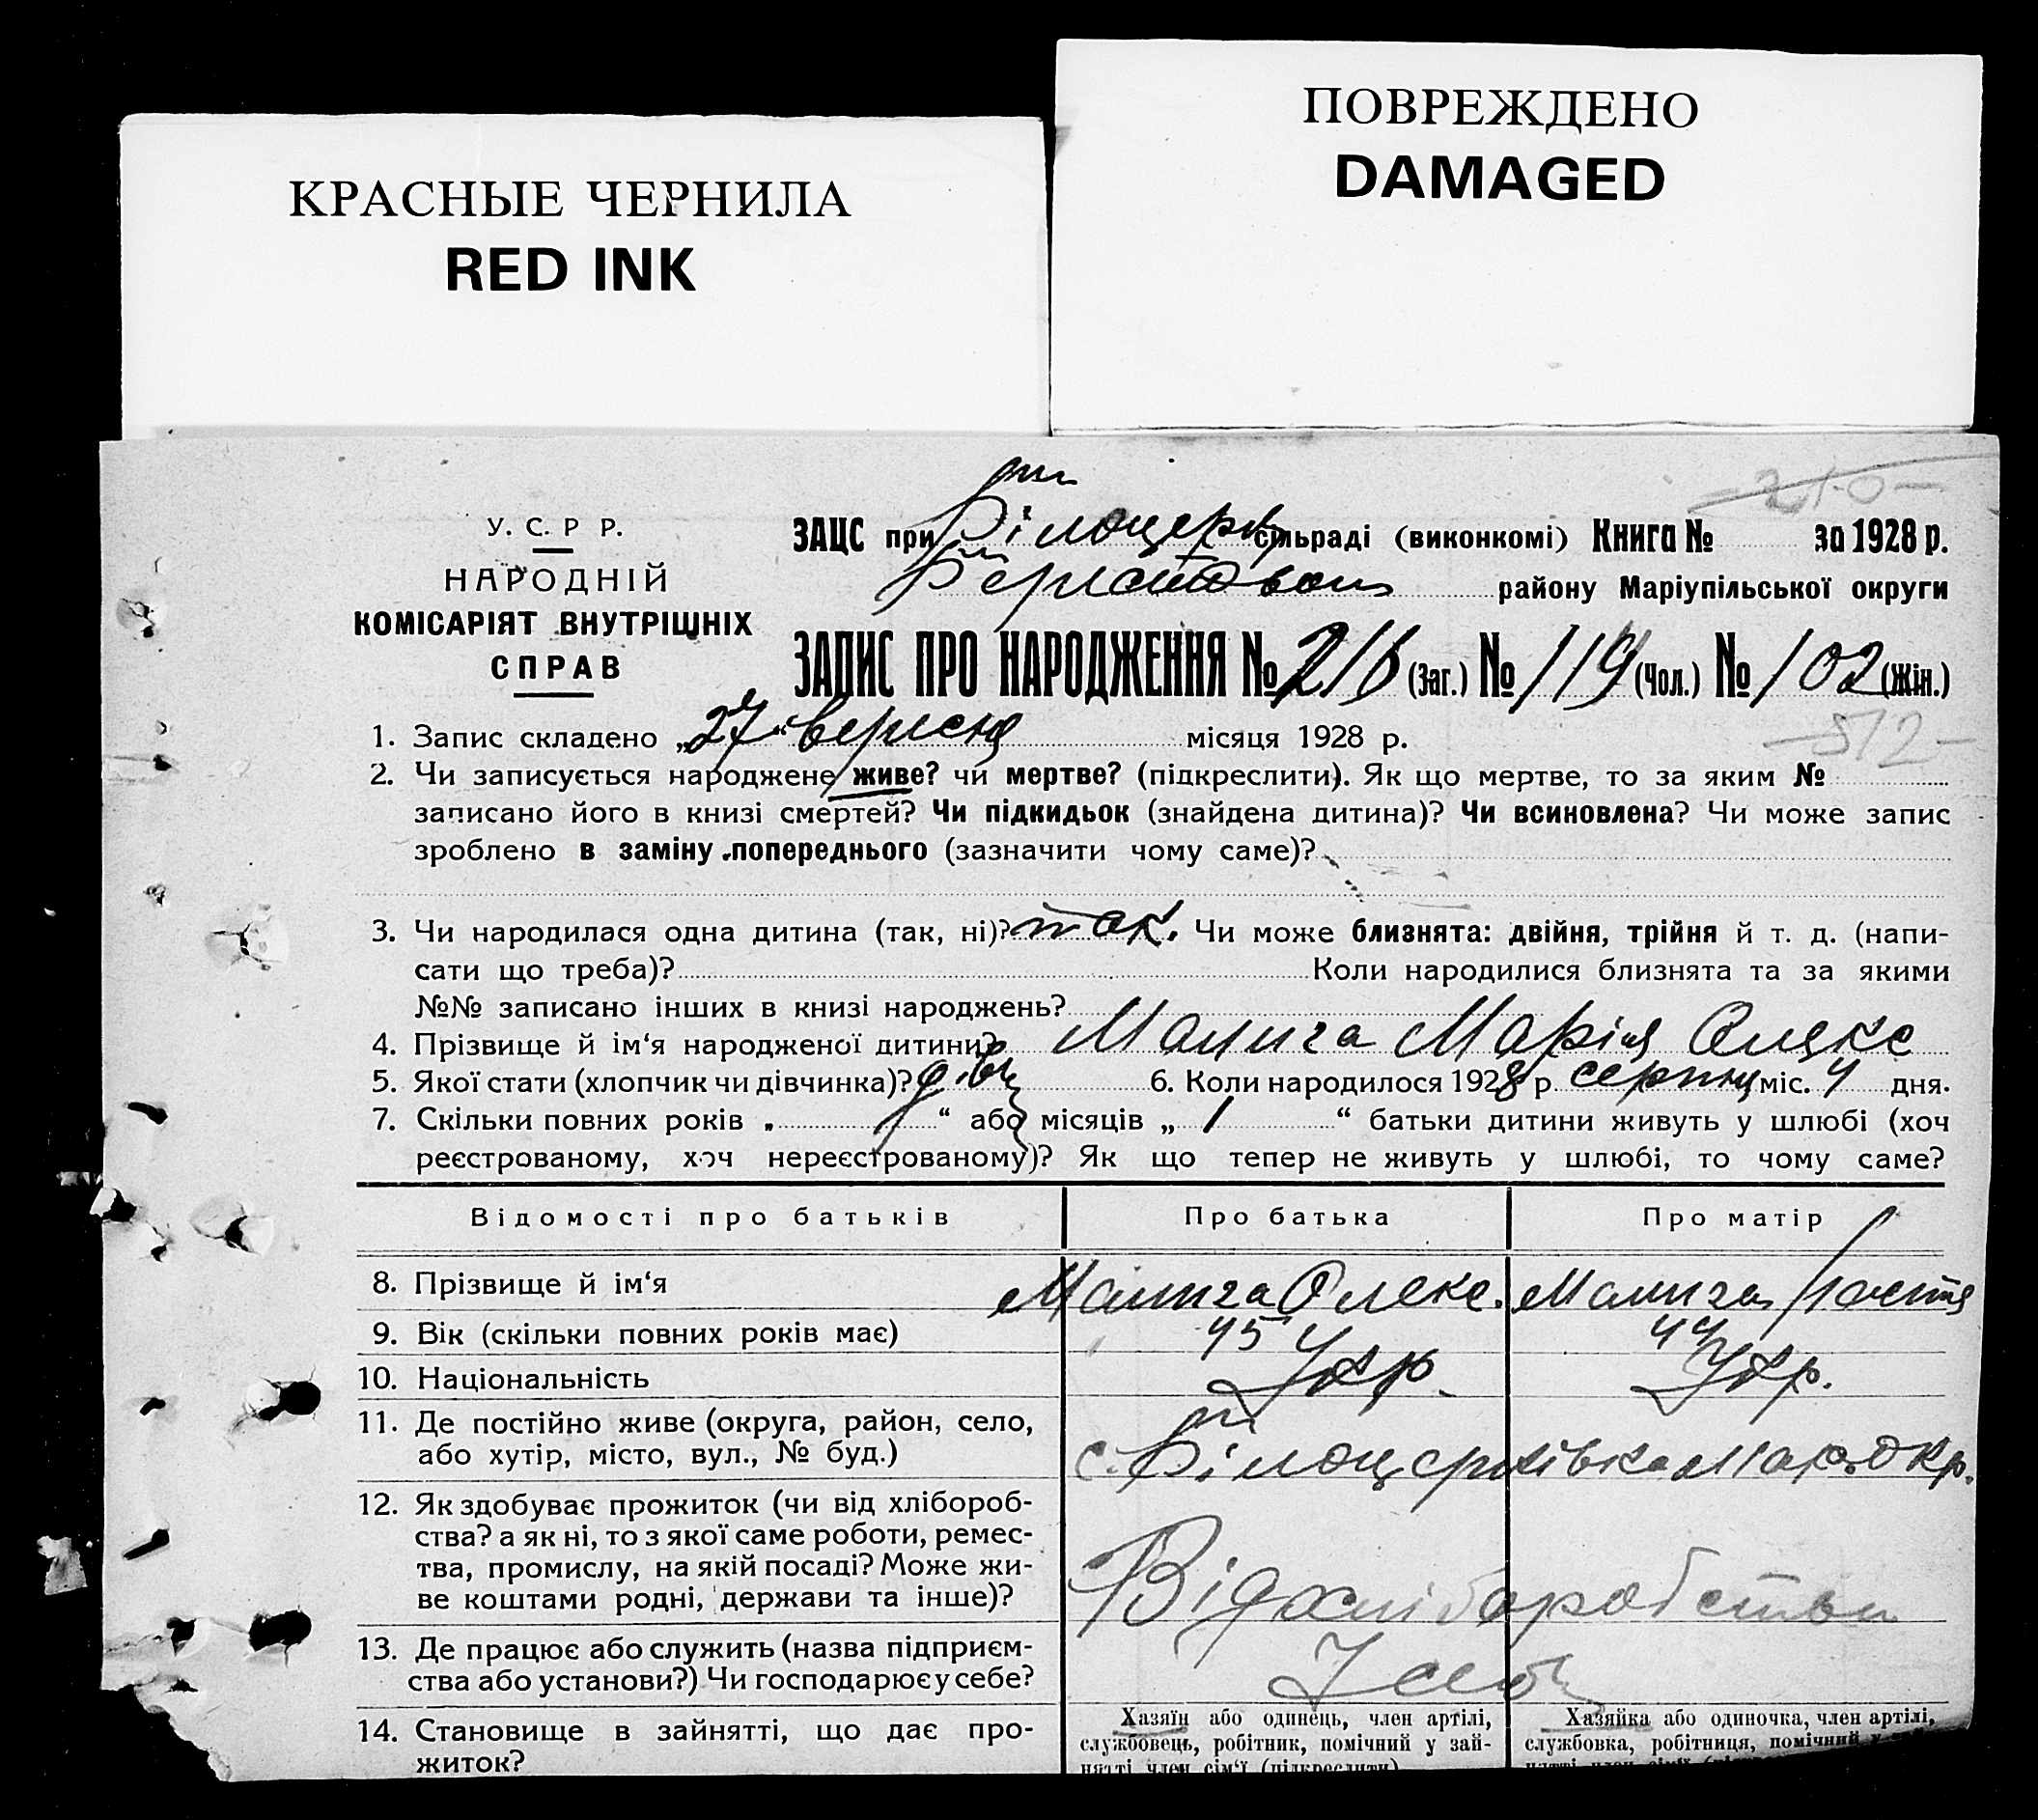 КРАСНЫЕ ЧЕРНИЛА
RED INK
ПОВРЕЖДЕНО
DAMAGED
У. С. Р Р.
НАРОДНІЙ
КОМІСАРІЯТ ВНУТРІШНІХ
СПРАВ
ЗАЦС при Білоцерк сільраді (виконкомі) Книга № за 1928 р.
району Маріупільської округи
ЗАПИС ПРО НАРОДЖЕННЯ № 216 (Заг.) № 119 (Чол.) № 102 (Жін.)
1. Запис складено „27“ вересня місяця 1928 р.
-512-
2. Чи записується народжене живе? чи мертве? (підкреслити). Як що мертве, то за яким №
записано його в книзі смертей? Чи підкидьок (знайдена дитина)? Чи всиновлена? Чи може запис
зроблено в заміну попереднього (зазначити чому саме)?
3. Чи народилася одна дитина (так, ні)? так. Чи може близнята: двійня, трійня й т. д. (напи-
сати що треба)? Коли народилися близнята та за якими
№№ записано інших в книзі народжень?
4. Прізвище й ім‘я народженої дитини? Малига Марія Олекс
5. Якої стати (хлопчик чи дівчинка)? дівч 6. Коли народилося 1928 р. серпня міс. 4 дня.
7. Скільки повних років „ “ або місяців „ 1 “ батьки дитини живуть у шлюбі (хоч
реєстрованому, хоч нереєстрованому)? Як що тепер не живуть у шлюбі, то чому саме?
Відомості про батьків Про батька Про матір
8. Прізвище й ім‘я Малига Олекс. Малига
9. Вік (скільки повних років має) 45 44
10. Національність Укр. Укр.
11. Де постійно живе (округа, район, село,
або хутір, місто, вул., № буд.) с. Білоцерківка Мар. Окр.
12. Як здобуває прожиток (чи від хлібороб-
ства? а як ні, то з якої саме роботи, ремес-
тва, промислу, на якій посаді? Може жи-
ве коштами родні, держави та інше)? Від хліборобства
13. Де працює або служить (назва підприєм-
ства або установи?) Чи господарює у себе? У себе
14. Становище в зайнятті, що дає про-
житок?
Хазяїн або одинець, член артілі,
службовець, робітник, помічний у зай-
нятті член сім‘ї (підкреслити)
Хазяйка або одиночка, член артілі,
службовка, робітниця, помічний у